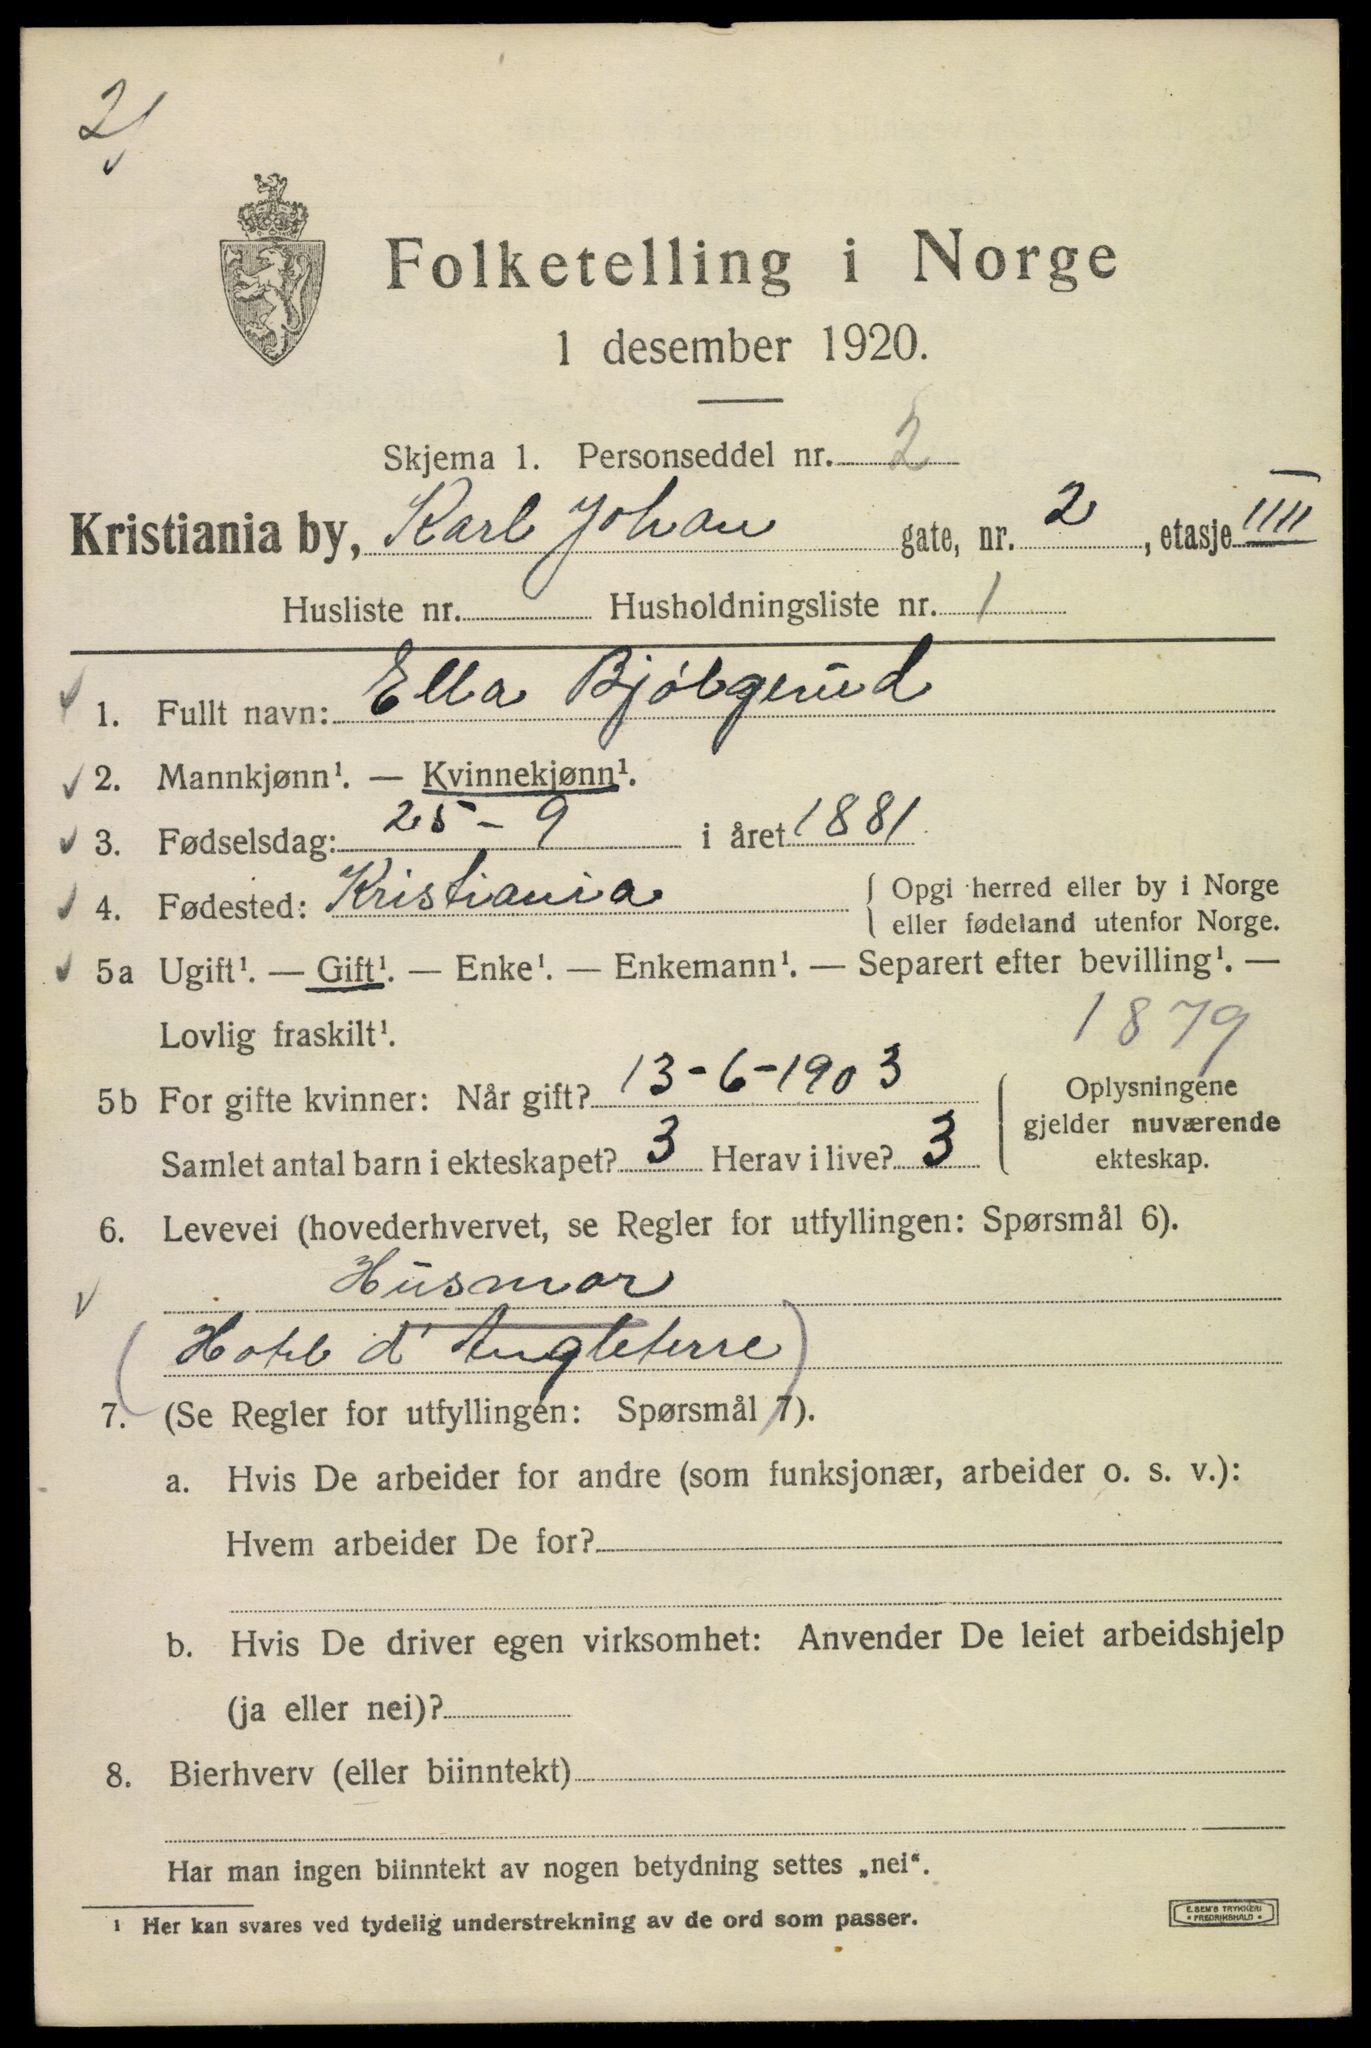 2
Folketelling i Norge
1 desember 1920.
Skjema 1. Personseddel nr. 2
Kristiania by, Karl Johan gate, nr. 2, etasje IIII
Husliste nr. Husholdningsliste nr. 1
1. Fullt navn: Ella Bjølgerud
2. Mannkjønn¹. — Kvinnekjønn¹.
3. Fødselsdag: 25-9 i året 1881
4. Fødested: Kristiania { Opgi herred eller by i Norge
eller fødeland utenfor Norge.
5a Ugift¹. — Gift¹. — Enke¹. — Enkemann¹. — Separert efter bevilling¹. —
Lovlig fraskilt¹. 1879
5b For gifte kvinner: Når gift? 13-6-1903 { Oplysningene
gjelder nuværende
Samlet antal barn i ekteskapet? 3 Herav i live? 3 ekteskap.
6. Levevei (hovederhvervet, se Regler for utfyllingen: Spørsmål 6).
Husmor
(Hotel d'Angleterre)
7. (Se Regler for utfyllingen: Spørsmål 7).
a. Hvis De arbeider for andre (som funksjonær, arbeider o. s. v.):
Hvem arbeider De for?
b. Hvis De driver egen virksomhet: Anvender De leiet arbeidshjelp
(ja eller nei)?
8. Bierhverv (eller biinntekt)
Har man ingen biinntekt av nogen betydning settes „nei“.
¹ Her kan svares ved tydelig understrekning av de ord som passer.
E. SEM'S TRYKKERI
• FREDRIKSHALD •